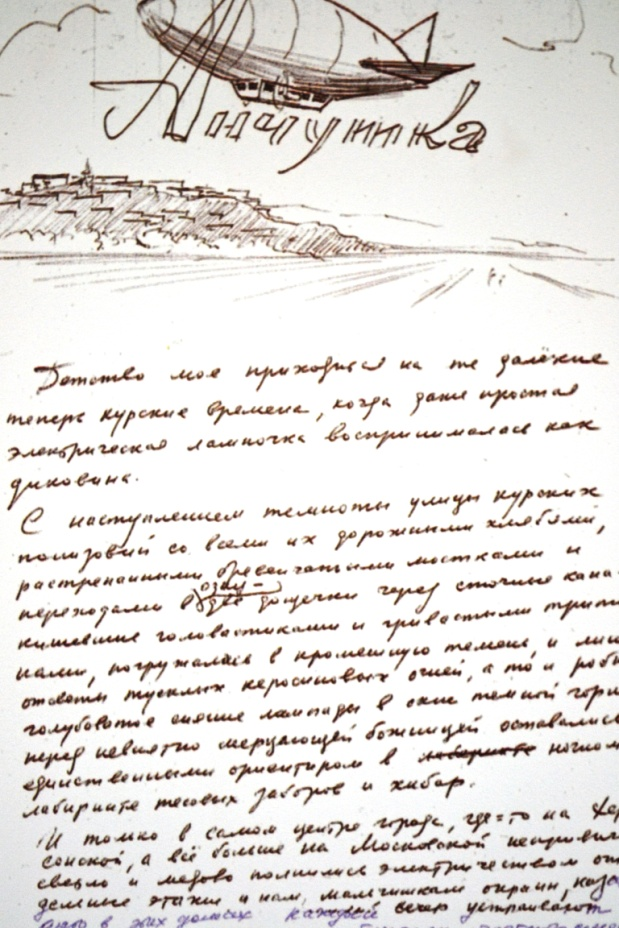 Лопушка
Детство мое приходится на те далёкие
теперь курские времена, когда даже простая
электрическая лампочка воспринималась как
диковина.
С наступлением темноты улицы курских
низовий со всеми их дорожными хлябями,
растрепанными бревенчатыми мостками и
одну-
переходами в две дощечки через сточные кана-
кишевшие головастиками и гривастыми трито-
нами, погружалась в кромешную темень, и лишь
отсветы тусклых керосиновых огней, а то и робкое
голубоватое сияние лампады в окне темной горни
перед невнятно мерцающей божницей оставались
единственными ориентиром в лабиринте ночном
лабиринте тесовых заборов и хибар.
И только в самом центре города, где-то на Хер
сонской, а всё больше на Московской непривычно
светло и медово полнились электричеством от
дельные этажи и нам, мальчишкам окраин, каза
в этих домах каждый вечер устраивают